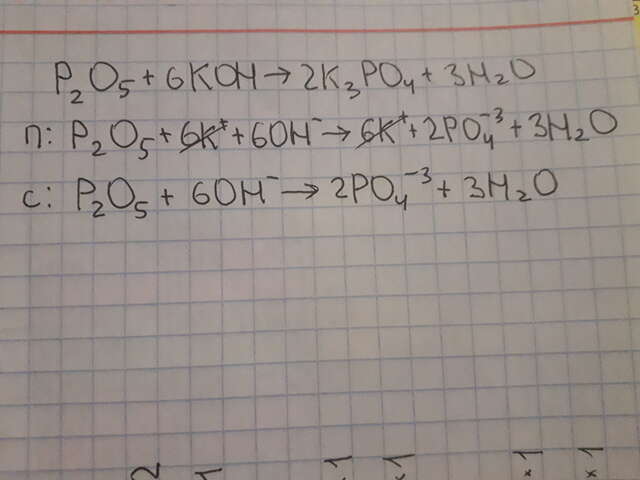 P₂O₅ + 6KOH → 2K₃PO₄ + 3H₂O
П: P₂O₅ + 6K⁺ + 6OH⁻ → 6K⁺ + 2PO₄⁻³ + 3H₂O
С: P₂O₅ + 6OH⁻ → 2PO₄⁻³ + 3H₂O